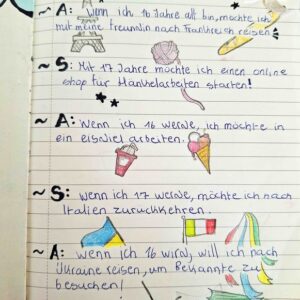 ~ A: Wenn ich 16 Jahre alt bin, möchte ich
mit meine Freundin nach Frankreich reisen
~ S: Mit 17 Jahre möchte ich einen online
shop für Hänkelarbeiten starten!
~ A: Wenn ich 16 werde, ich möchte in
ein eisdiel arbeiten.
~ S: Wenn ich 17 werde, möchte ich nach
Italien zuruckkehren.
~ A: Wenn ich 16 wird, will ich nach
Ukraine reisen, um Bekannte zu
besuchen!